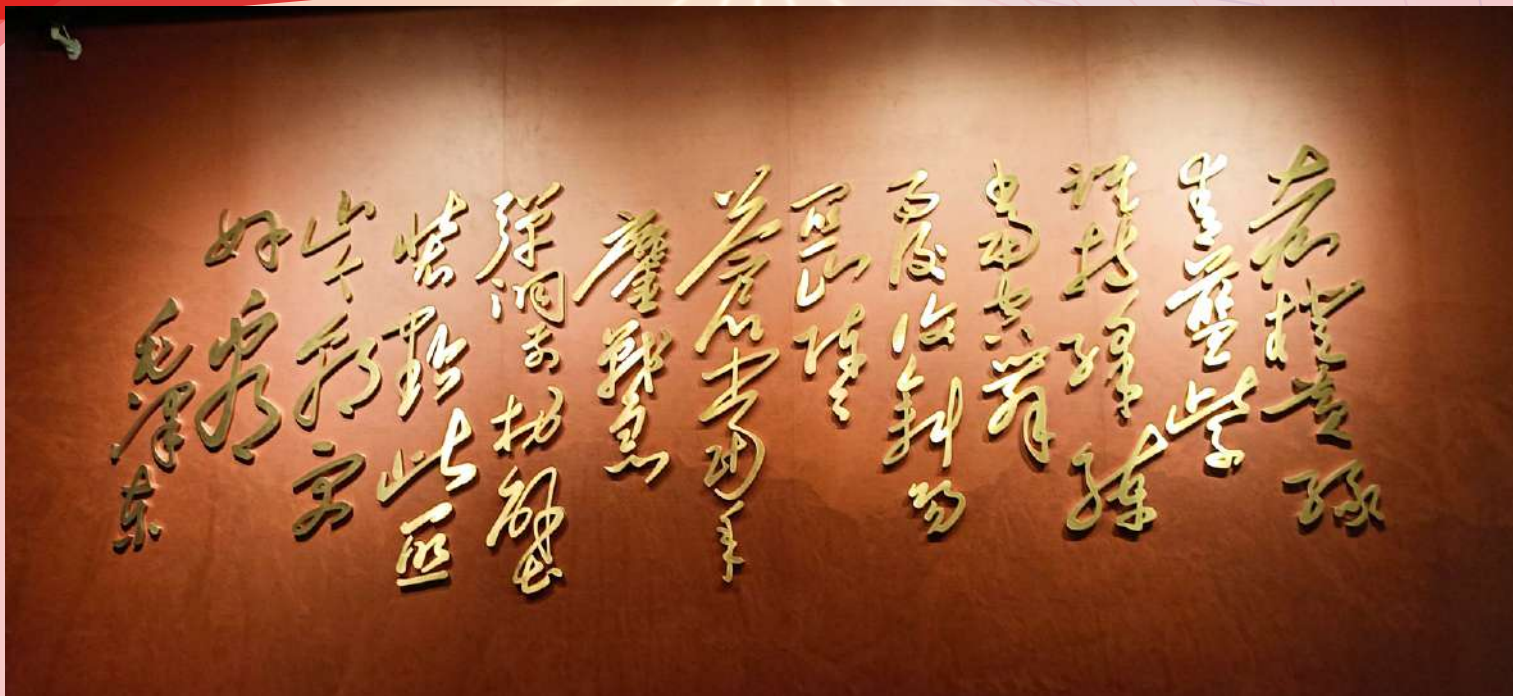 赤橙黄绿
青蓝紫
谁持彩练
当空舞
雨后复斜阳
关山阵阵
苍当年
鏖战急
弹洞前村壁
装点此关
山今朝更
好看
毛泽东